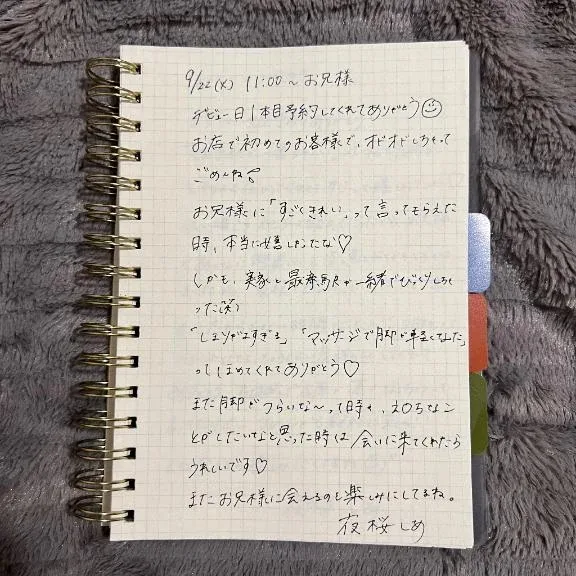 9/22(火) 11:00〜お兄様
デビュー日1本目予約してくれてありがとう
お店で初めてのお客様で、オドオドしちゃって
ごめんね
お兄様に「すごくきれい」って言ってもらえた
時、本当に嬉しかったな♡
しかも、実家と最寄駅が一緒でびっくりしちゃ
った(笑)
「しまりがよすぎる」「マッサージで脚が軽くなった」
ってほめてくれてありがとう♡
また脚がつらいな〜って時や、えっちなこ
とがしたいなと思った時は会いに来てくれたら
うれしいです♡
またお兄様に会えるのを楽しみにしてるね。
夜桜しめ